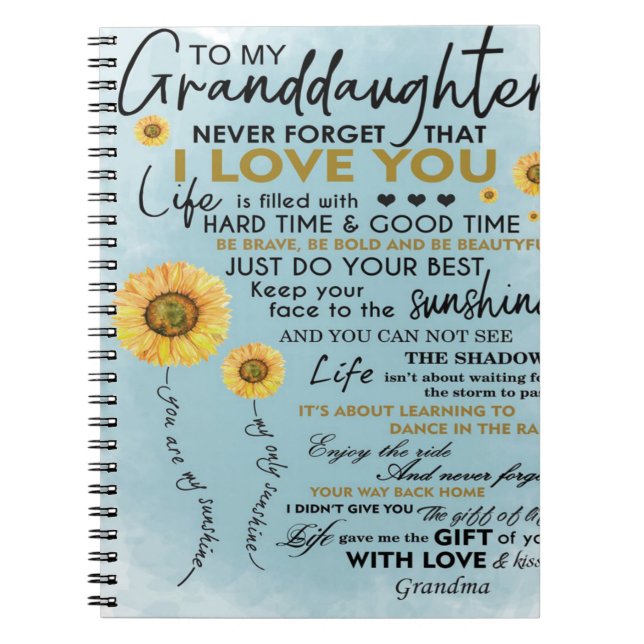 TO MY
Granddaughter
NEVER FORGET THAT
I LOVE YOU
Life is filled with
HARD TIME & GOOD TIME
BE BRAVE, BE BOLD AND BE BEAUTIFU
JUST DO YOUR BEST
Keep your
face to the sunshine
AND YOU CAN NOT SEE
THE SHADOW
Life isn't about waiting fo
the storm to pas
IT'S ABOUT LEARNING TO
DANCE IN THE RA
Enjoy the ride
And never forge
YOUR WAY BACK HOME
I DIDN'T GIVE YOU The giff of lif
Life gave me the GIFT of yo
WITH LOVE & kiss
Grandma
you are my sunshine
my only sunshine